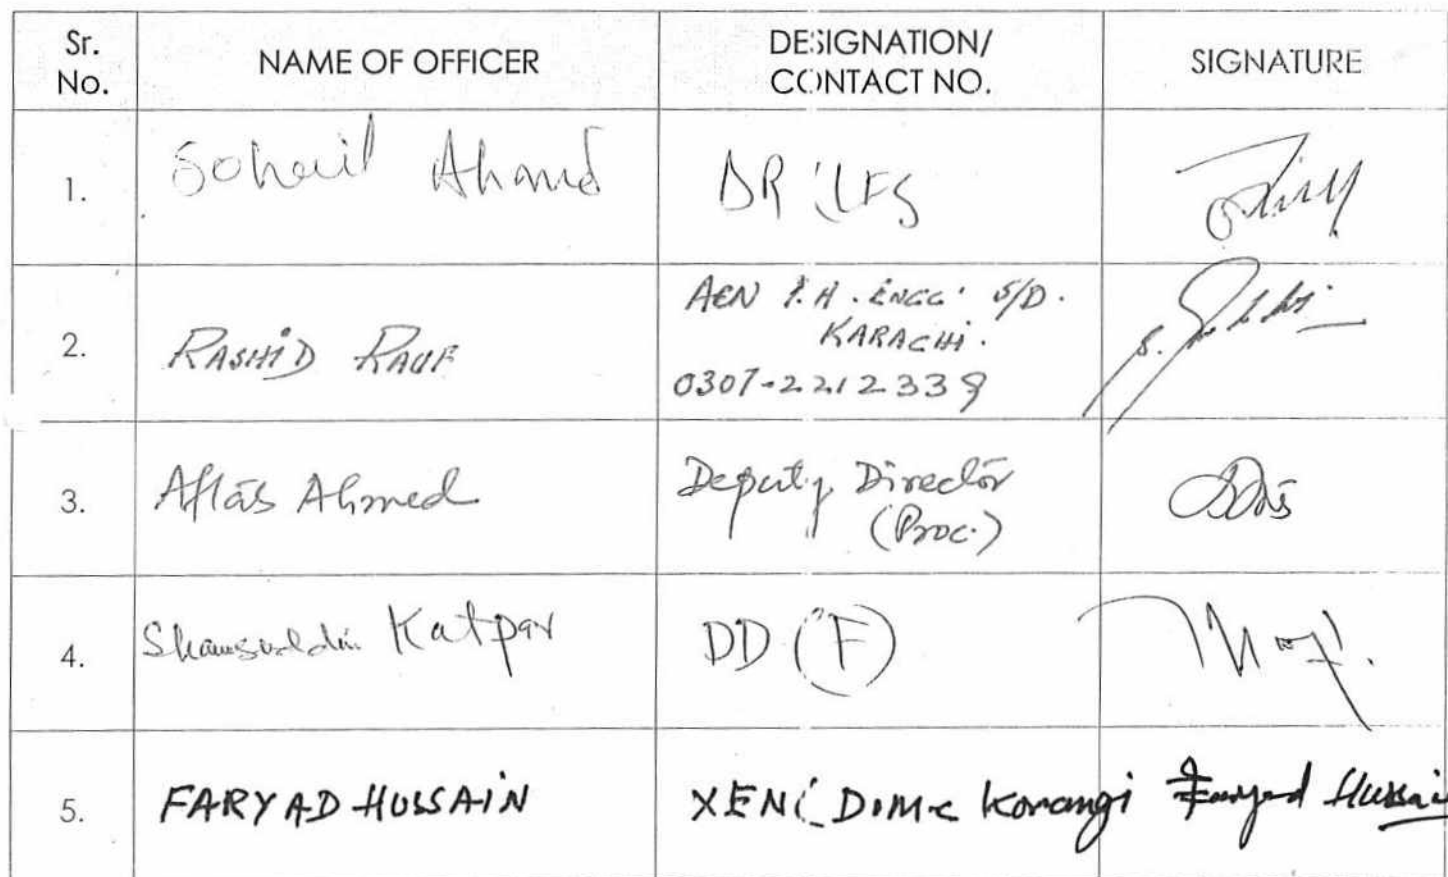 Sr. No.
NAME OF OFFICER
DESIGNATION/
CONTACT NO.
SIGNATURE
1.
Soheil Ahmed
2.
RASHID RAUF
AEN P.H. ENGG. S/D.
KARACHI.
0307-2212339
3.
Aftab Ahmed
Deputy Director
(Proc.)
4.
Shamsuddin Katpar
DD (F)
5.
FARYAD HUSSAIN
XEN DMC Korangi
Faryad Hussain